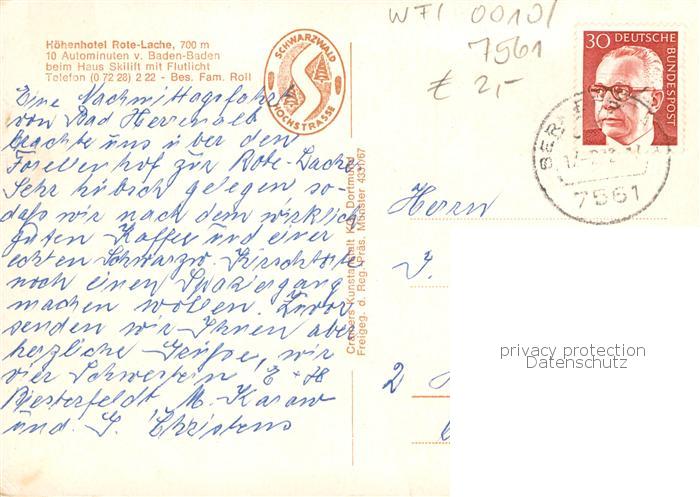 WFI 0010/
7561
€ 2,-
Höhenhotel Rote-Lache, 700 m
10 Autominuten v. Baden-Baden
beim Haus Skilift mit Flutlicht
Telefon (0 72 28) 2 22 - Bes. Fam. Roll
SCHWARZWALD
HOCHSTRASSE
30 DEUTSCHE
BUNDESPOST
BER
7561
Eine Nachmittagsfahrt
von Bad Herrenalb
brachte uns über den
Forellenhof zur Rote-Lache
Sehr hübsch gelegen so-
daß wir nach dem wirklich
guten Kaffee und einer
echten Schwarzw. Kirschtorte
noch einen Spaziergang
machen wollen. Zuvor
senden wir Ihnen aber
herzliche Grüße, wir
vier Schwestern E + H
Biesterfeldt M. Karaw
und J. Christens
Cramers Kunstanstalt KG, Dortmund
Freigeg. d. Reg.-Präs. Münster 4331/67
Herrn
J.
2
privacy protection
Datenschutz